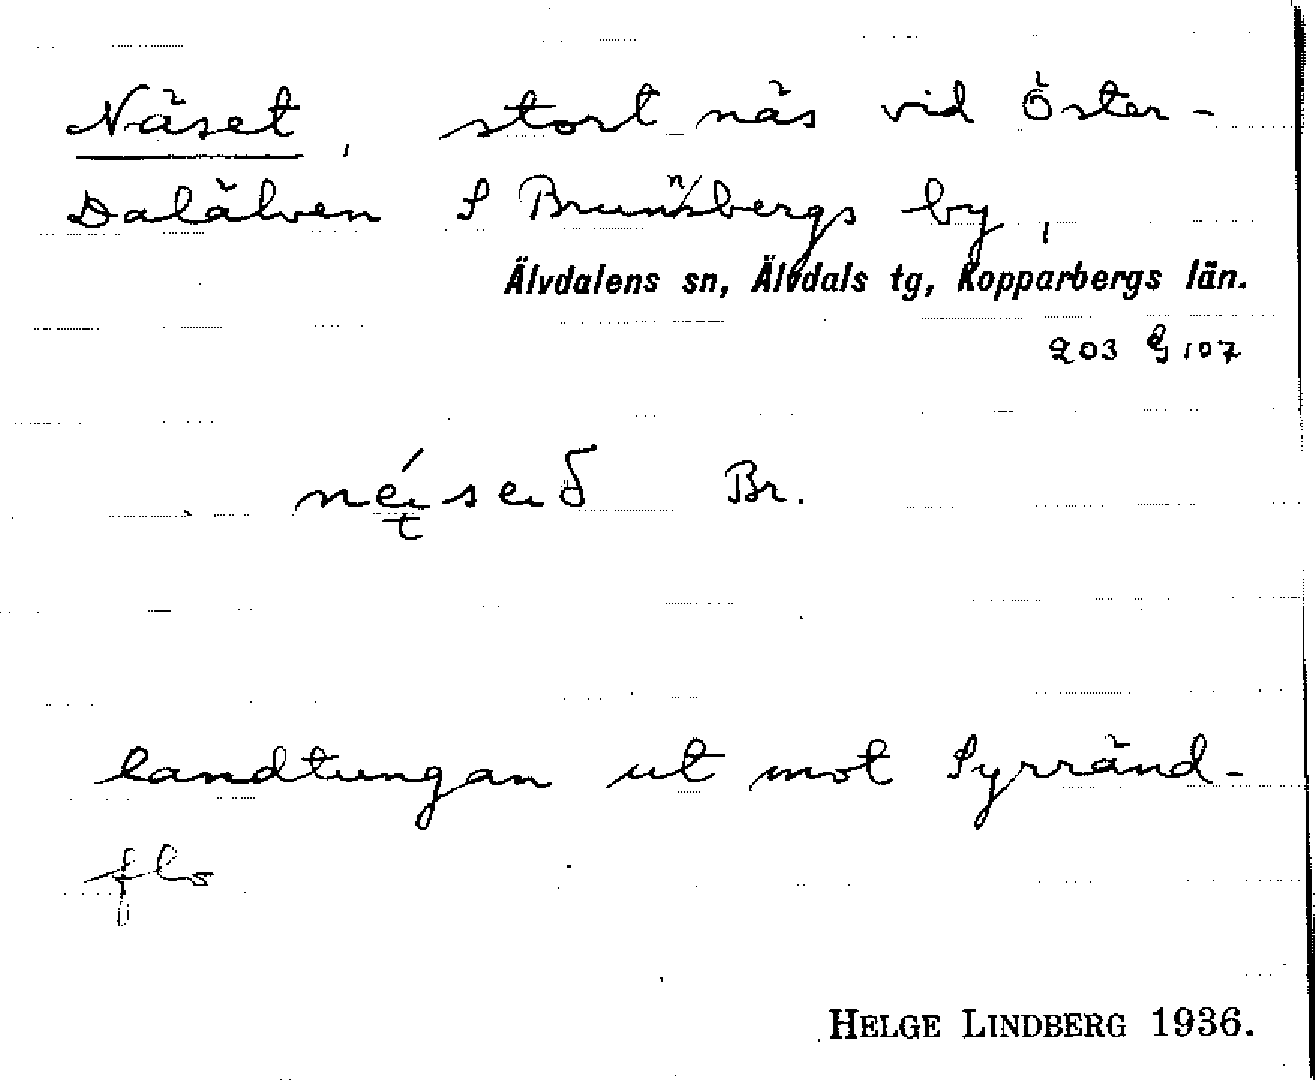 Näset, stort näs vid Öster-
Dalälven S Brunnsbergs by,
Älvdalens sn, Älvdals tg, Kopparbergs län.
203 g 107
Br.
landtungan ut mot Syrränd-
fls
HELGE LINDBERG 1936.